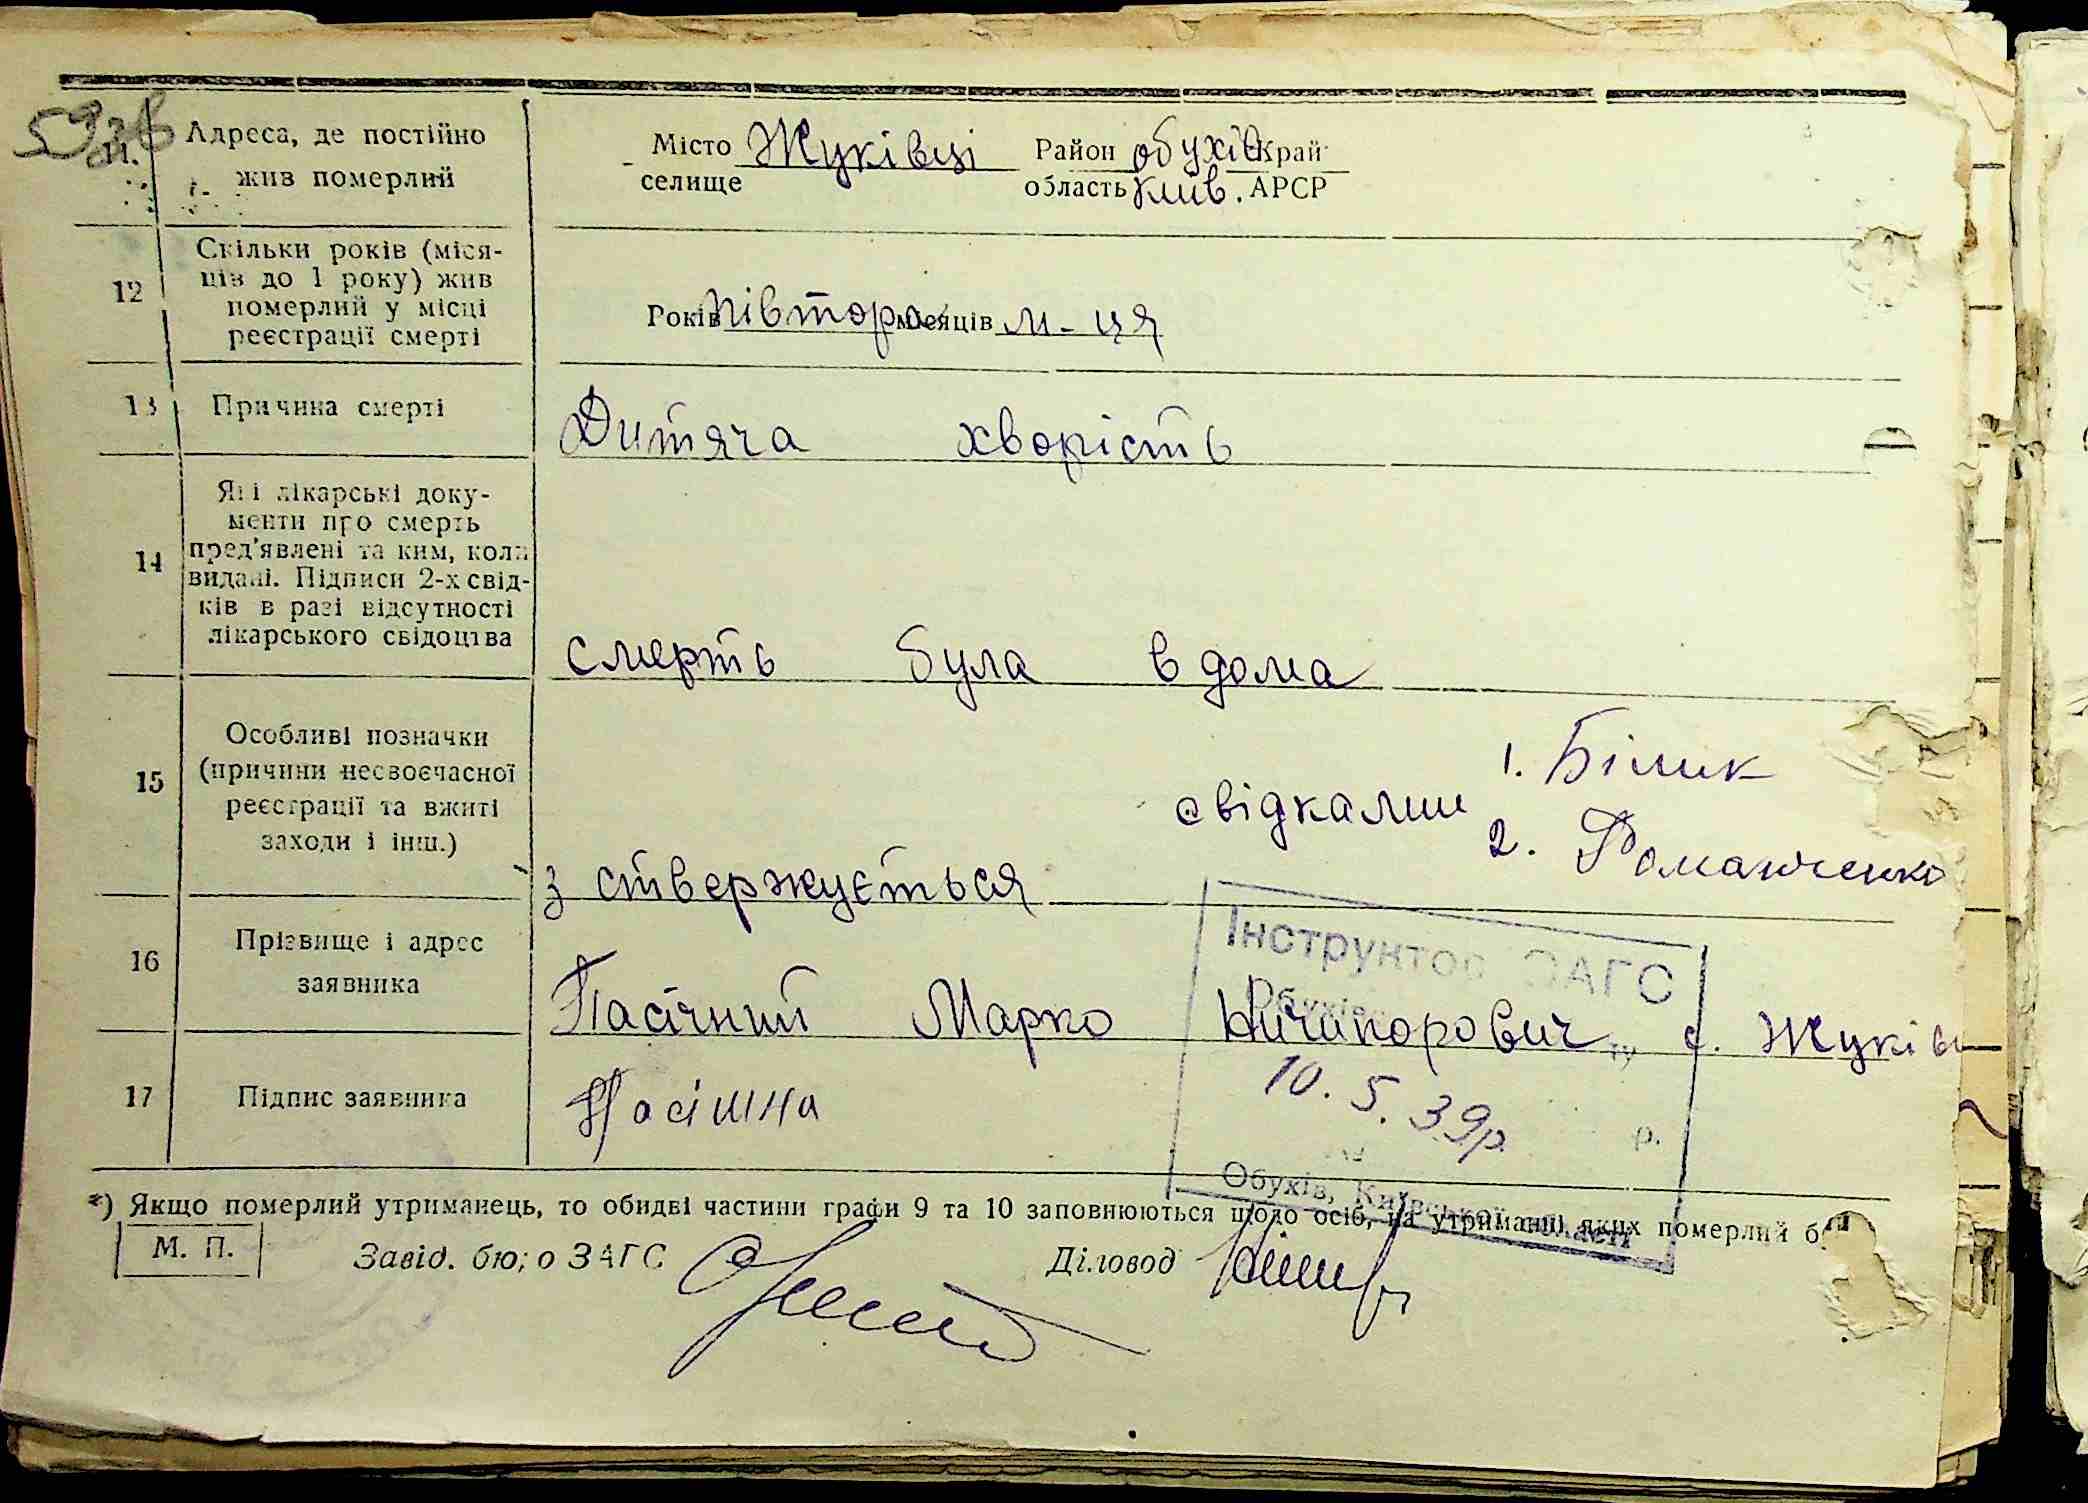 593в
11. Адреса, де постійно
жив померлий
Місто Жуківці Район обухів Край
селище область Київ. АРСР
12 Скільки років (міся-
ців до 1 року) жив
померлий у місці
реєстрації смерті
Років півтора місяців м-ця
13 Причина смерті
Дитяча хворість
14 Які лікарські доку-
менти про смерть
пред'явлені та ким, коли
видані. Підписи 2-х свід-
ків в разі відсутності
лікарського свідоцтва
смерть була в дома
15 Особливі позначки
(причини несвоєчасної
реєстрації та вжиті
заходи і інш.)
свідками 1. Білик
2. Романченко
з ствержується
16 Прізвище і адрес
заявника
Пасічний Марко Ничипорович с. Жуків
17 Підпис заявника
Пасішна
Інструктор ЗАГС
10. 5. 39р.
р.
Обухів, Київської області
*) Якщо померлий утриманець, то обидві частини графи 9 та 10 заповнюються щодо осіб, на утриманні яких померлий б
М. П. Завід. бюро ЗАГС Діловод